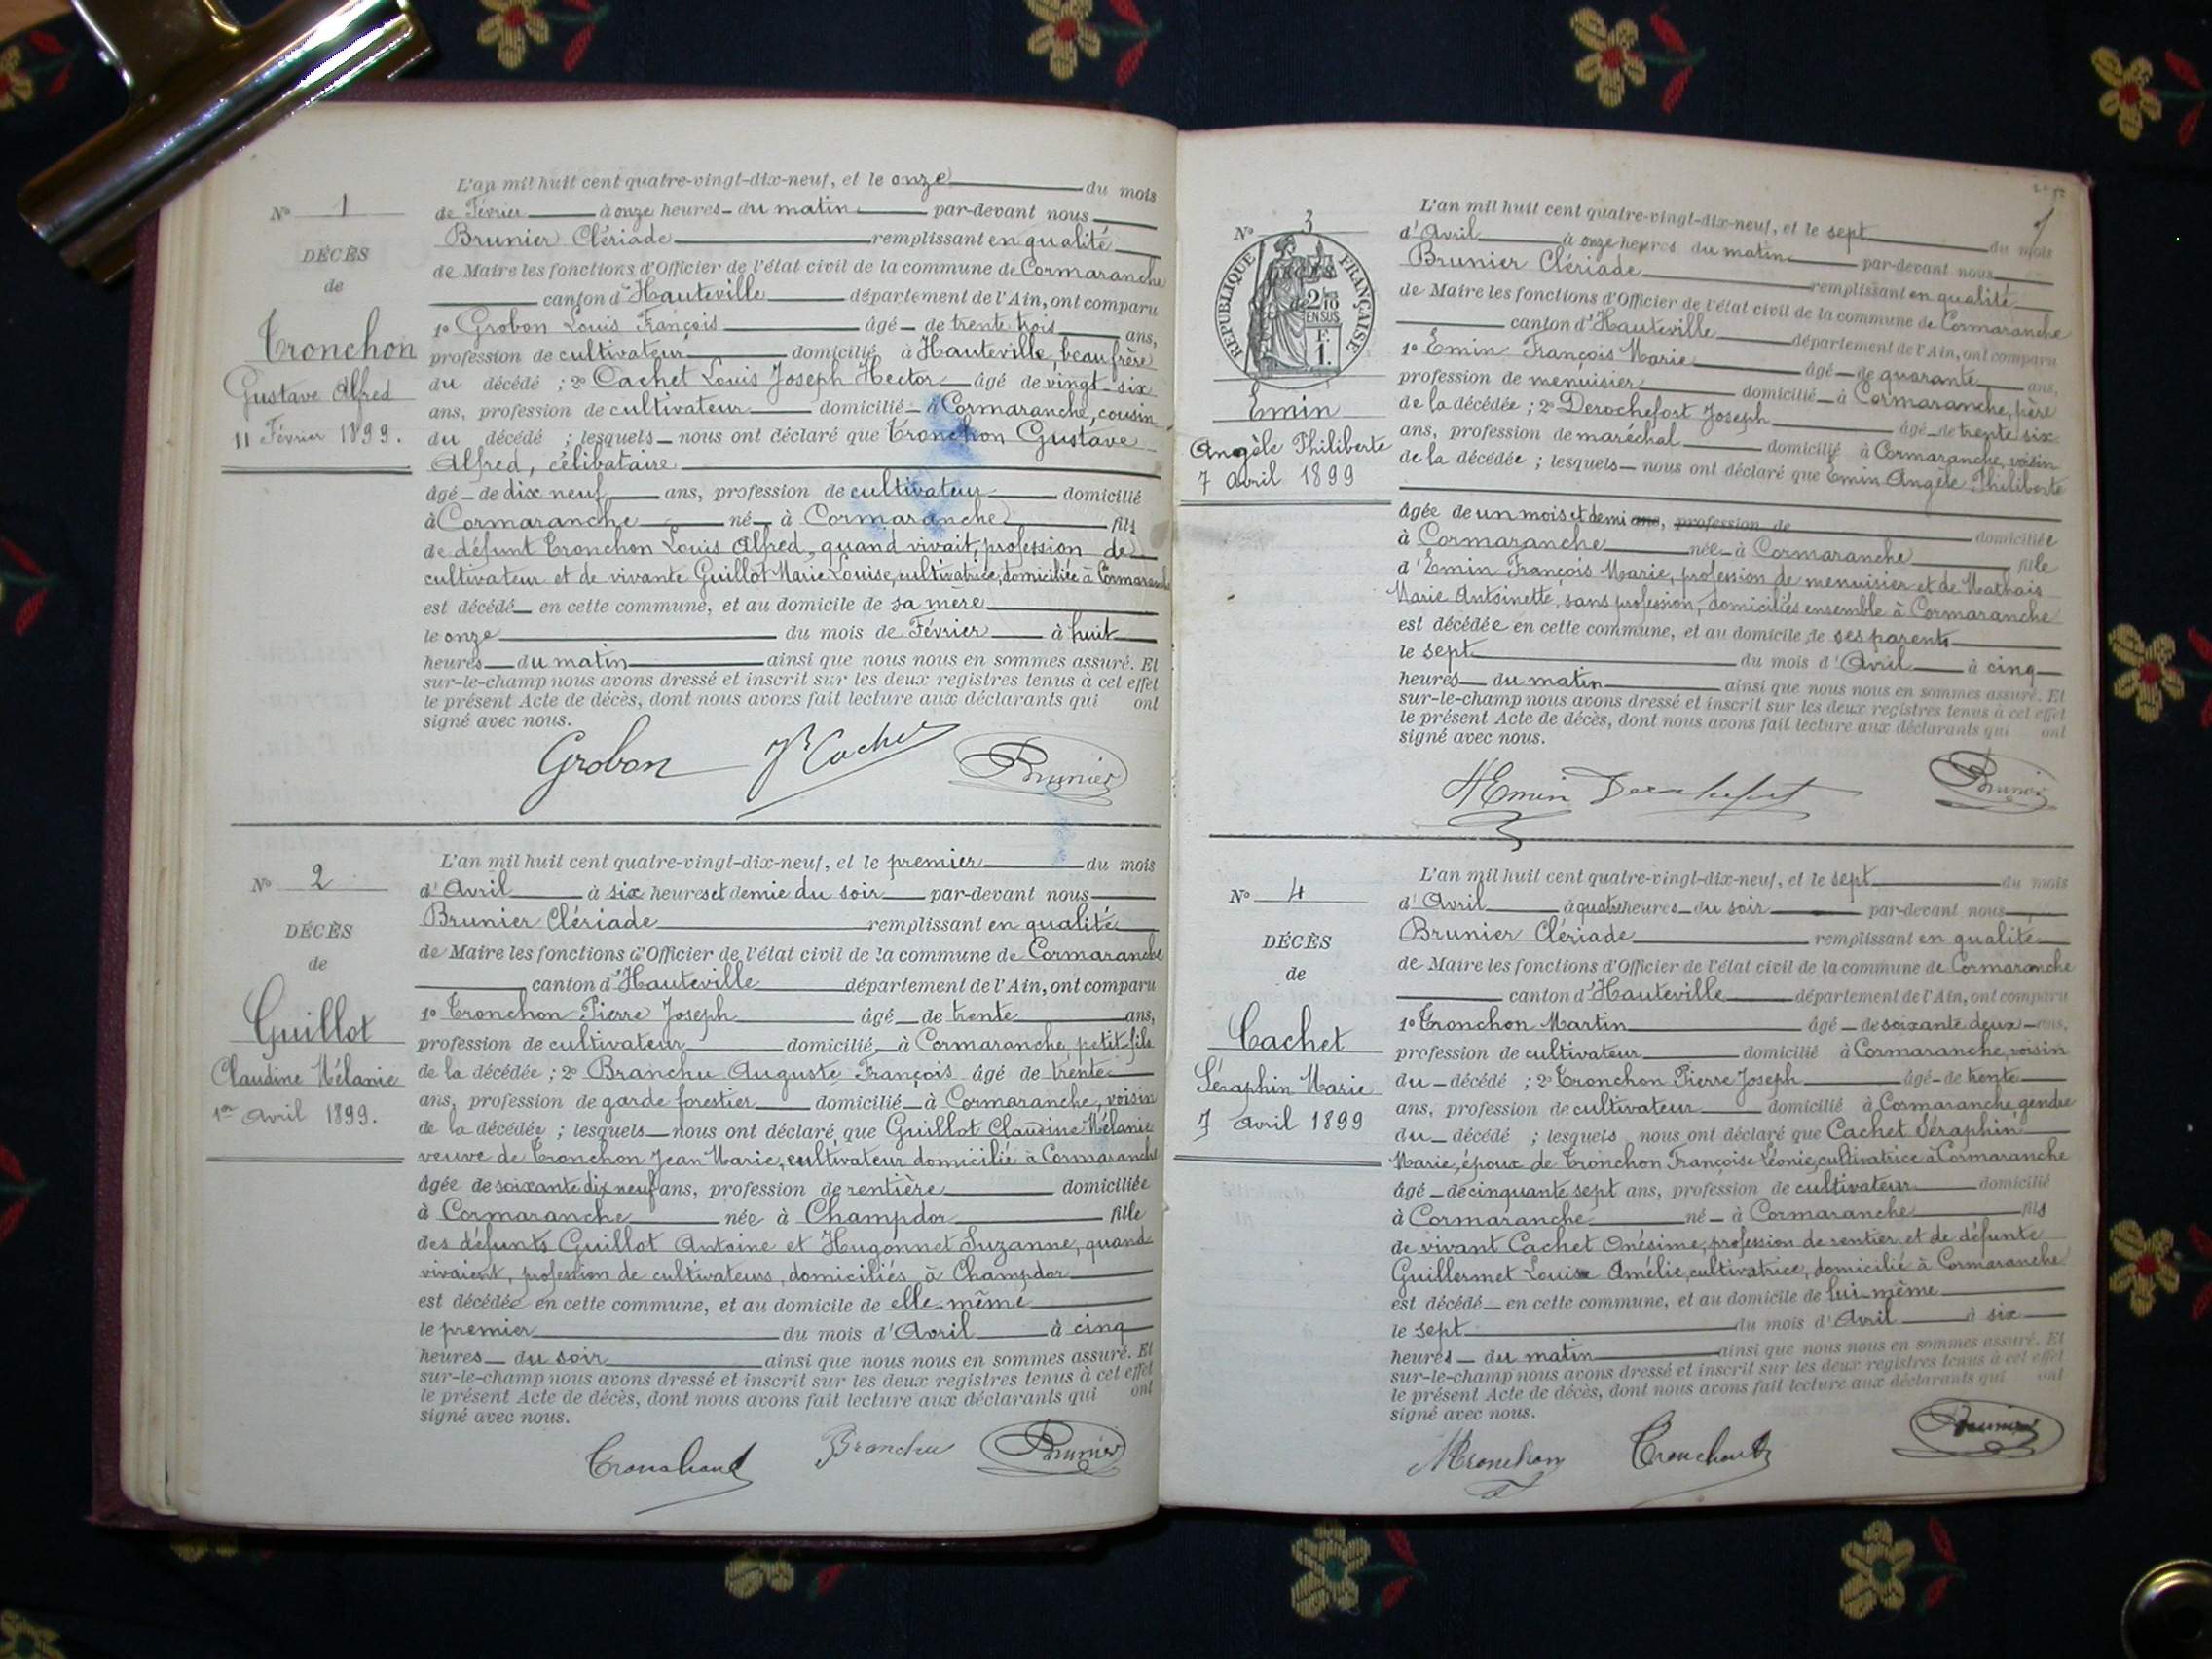 N° 1
DÉCÈS
de
Tronchon
Gustave Alfred
11 Février 1899.
L'an mil huit cent quatre-vingt-dix-neuf, et le onze du mois
de Février à onze heures du matin par-devant nous
Brunier Clériade remplissant en qualité
de Maire les fonctions d'Officier de l'état civil de la commune de Cormaranche
canton d'Hauteville département de l'Ain, ont comparu
1° Grobon Louis François âgé de trente trois ans,
profession de cultivateur domicilié à Hauteville, beau frère
du décédé ; 2° Cachet Louis Joseph Hector âgé de vingt six
ans, profession de cultivateur domicilié à Cormaranche, cousin
du décédé ; lesquels nous ont déclaré que Tronchon Gustave
Alfred, célibataire
âgé de dix neuf ans, profession de cultivateur domicilié
à Cormaranche né à Cormaranche fils
de défunt Tronchon Louis Alfred, quand vivait, profession de
cultivateur et de vivante Guillot Marie Louise, cultivatrice, domiciliée à Cormaranche
est décédé en cette commune, et au domicile de sa mère
le onze du mois de Février à huit
heures du matin ainsi que nous nous en sommes assuré. Et
sur-le-champ nous avons dressé et inscrit sur les deux registres tenus à cet effet
le présent Acte de décès, dont nous avons fait lecture aux déclarants qui ont
signé avec nous.
Grobon Cachet Brunier
N° 2
DÉCÈS
de
Guillot
Claudine Mélanie
1er Avril 1899.
L'an mil huit cent quatre-vingt-dix-neuf, et le premier du mois
d'Avril à six heures et demie du soir par-devant nous
Brunier Clériade remplissant en qualité
de Maire les fonctions d'Officier de l'état civil de la commune de Cormaranche
canton d'Hauteville département de l'Ain, ont comparu
1° Tronchon Pierre Joseph âgé de trente ans,
profession de cultivateur domicilié à Cormaranche, petit-fils
de la décédée ; 2° Branchu Auguste François âgé de trente
ans, profession de garde forestier domicilié à Cormaranche, voisin
de la décédée ; lesquels nous ont déclaré que Guillot Claudine Mélanie
veuve de Tronchon Jean Marie, cultivateur domicilié à Cormaranche
âgée de soixante dix neuf ans, profession de rentière domiciliée
à Cormaranche née à Champdor fille
des défunts Guillot Antoine et Hugonnet Suzanne, quand
vivaient, profession de cultivateurs, domiciliés à Champdor
est décédée en cette commune, et au domicile de elle même
le premier du mois d'Avril à cinq
heures du soir ainsi que nous nous en sommes assuré. Et
sur-le-champ nous avons dressé et inscrit sur les deux registres tenus à cet effet
le présent Acte de décès, dont nous avons fait lecture aux déclarants qui ont
signé avec nous.
Tronchon Branchu Brunier
1
N° 3
RÉPUBLIQUE FRANÇAISE
2/10 EN SUS
F. 1.
Emin
Angèle Philiberte
7 Avril 1899
L'an mil huit cent quatre-vingt-dix-neuf, et le sept du mois
d'Avril à onze heures du matin par-devant nous
Brunier Clériade remplissant en qualité
de Maire les fonctions d'Officier de l'état civil de la commune de Cormaranche
canton d'Hauteville département de l'Ain, ont comparu
1° Emin François Marie âgé de quarante ans,
profession de menuisier domicilié à Cormaranche, père
de la décédée ; 2° Derochefort Joseph âgé de trente six
ans, profession de maréchal domicilié à Cormaranche, voisin
de la décédée ; lesquels nous ont déclaré que Emin Angèle Philiberte
âgée de un mois et demi ans, profession de domiciliée
à Cormaranche née à Cormaranche fille
d'Emin François Marie, profession de menuisier et de Mathais
Marie Antoinette, sans profession, domiciliés ensemble à Cormaranche
est décédée en cette commune, et au domicile de ses parents
le sept du mois d'Avril à cinq
heures du matin ainsi que nous nous en sommes assuré. Et
sur-le-champ nous avons dressé et inscrit sur les deux registres tenus à cet effet
le présent Acte de décès, dont nous avons fait lecture aux déclarants qui ont
signé avec nous.
Emin Derochefort Brunier
N° 4
DÉCÈS
de
Cachet
Séraphin Marie
7 Avril 1899
L'an mil huit cent quatre-vingt-dix-neuf, et le sept du mois
d'Avril à quatre heures du soir par-devant nous
Brunier Clériade remplissant en qualité
de Maire les fonctions d'Officier de l'état civil de la commune de Cormaranche
canton d'Hauteville département de l'Ain, ont comparu
1° Tronchon Martin âgé de soixante deux ans,
profession de cultivateur domicilié à Cormaranche, voisin
du décédé ; 2° Tronchon Pierre Joseph âgé de trente
ans, profession de cultivateur domicilié à Cormaranche, gendre
du décédé ; lesquels nous ont déclaré que Cachet Séraphin
Marie, époux de Tronchon Françoise Léonie, cultivatrice à Cormaranche
âgé de cinquante sept ans, profession de cultivateur domicilié
à Cormaranche né à Cormaranche fils
de vivant Cachet Onésime, profession de rentier et de défunte
Guillermet Louise Amélie, cultivatrice, domicilié à Cormaranche
est décédé en cette commune, et au domicile de lui-même
le sept du mois d'Avril à six
heures du matin ainsi que nous nous en sommes assuré. Et
sur-le-champ nous avons dressé et inscrit sur les deux registres tenus à cet effet
le présent Acte de décès, dont nous avons fait lecture aux déclarants qui ont
signé avec nous.
Tronchon Tronchon Brunier